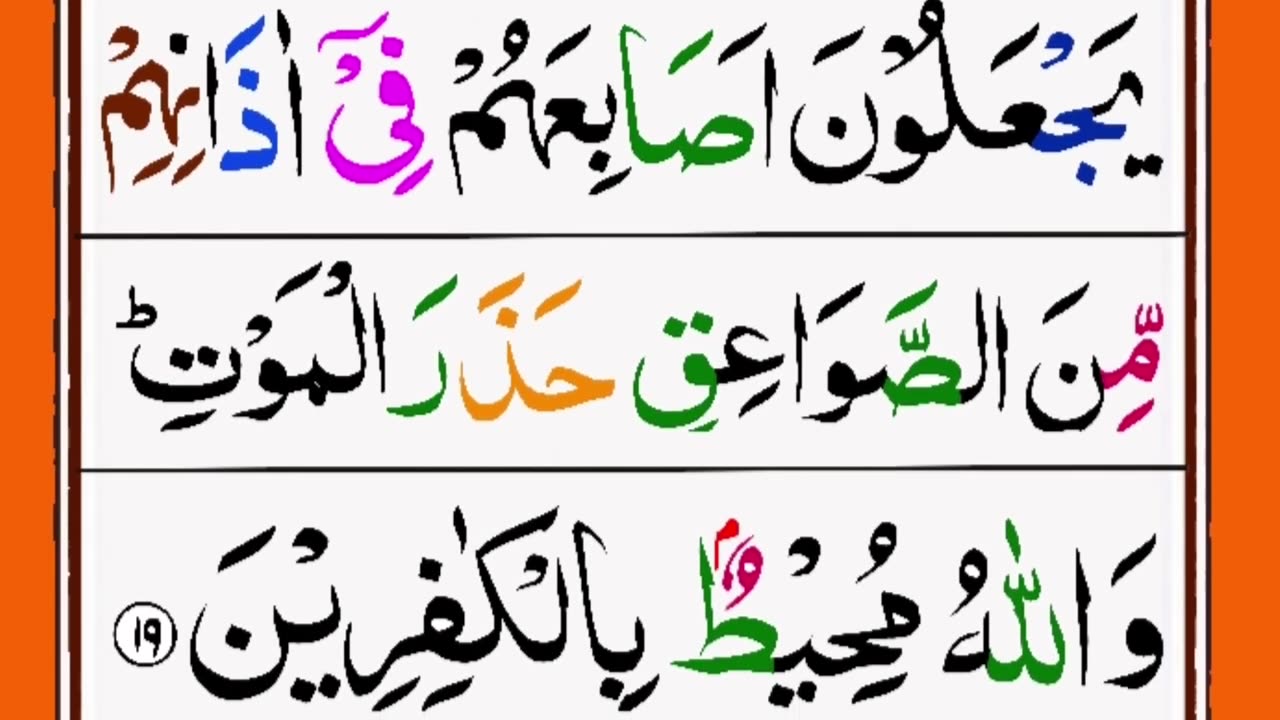 يَجْعَلُوْنَ اَصَابِعَهُمْ فِیْۤ اٰذَانِهِمْ
مِّنَ الصَّوَاعِقِ حَذَرَ الْمَوْتِ ؕ
وَاللّٰهُ مُحِيْطٌۢ بِالْكٰفِرِيْنَ ١٩